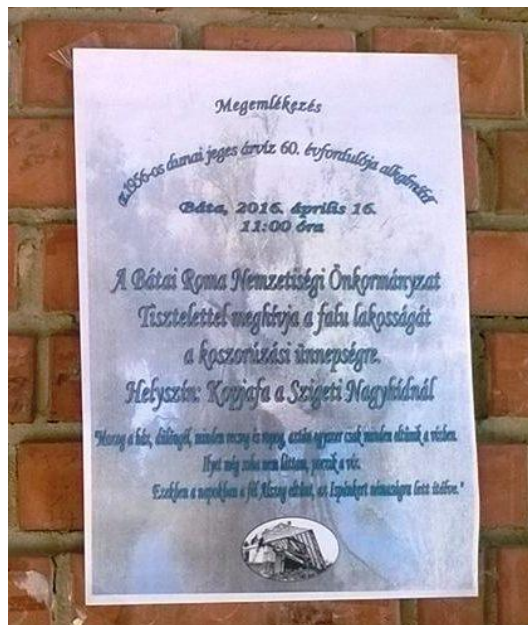 Megemlékezés
az 1956-os dunai jeges árvíz 60. évfordulója alkalmából
Báta, 2016. április 16.
11:00 óra
A Bátai Roma Nemzetiségi Önkormányzat
Tisztelettel meghívja a falu lakosságát
a koszorúzási ünnepségre.
Helyszín: Kopjafa a Szigeti Nagyhídnál
"Mozog a ház, dülöngél, minden recseg és ropog, aztán egyszer csak minden eltűnik a vízben.
Ilyet még soha nem láttam, porzik a víz.
Ezekben a napokban a fél Alszeg eltűnt, az Ispánkert némaságra lett ítélve."